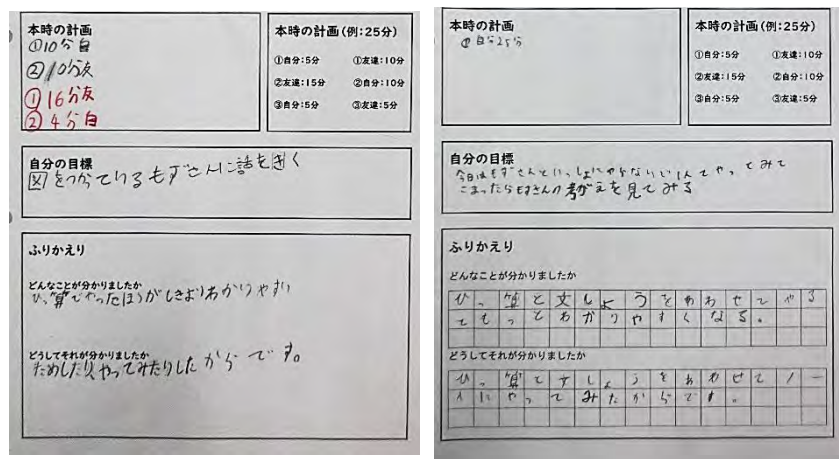 本時の計画
①10分自
②10分友
①16分友
②4分自
本時の計画(例:25分)
①自分:5分 ①友達:10分
②友達:15分 ②自分:10分
③自分:5分 ③友達:5分
自分の目標
図をつかっているもずさんに話をきく
ふりかえり
どんなことが分かりましたか
ひっ算でやったほうがしきよりわかりやすい
どうしてそれが分かりましたか
ためしたり、やってみたりしたからです。
本時の計画
①自分25分
本時の計画(例:25分)
①自分:5分 ①友達:10分
②友達:15分 ②自分:10分
③自分:5分 ③友達:5分
自分の目標
今日はもずさんといっしょにやらないで1人でやってみて
こまったらもずさんの考がえを見てみる
ふりかえり
どんなことが分かりましたか
ひっ算と文しょうをあわせてやる
ともっとわかりやすくなる。
どうしてそれが分かりましたか
ひっ算と文しょうをあわせて
にやってみたからです。